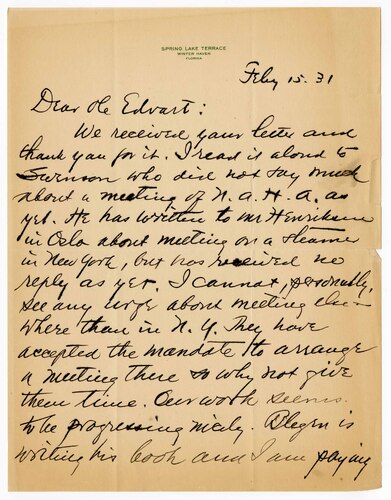 SPRING LAKE TERRACE
WINTER HAVEN
FLORIDA
Feby 15. 31
Dear Ole Edvart:
We received your letter and
thank you for it. I read it aloud to
Swenson who did not say much
about a meeting of N. A. H. A. as
yet. He has written to Mr Henriksen
in Oslo about meeting on a steamer
in New York, but has received no
reply as yet. I cannot, personally,
see any urge about meeting else-
where than in N. Y. They have
accepted the mandate to arrange
a meeting there so why not give
them time. Our work seems
to be progressing nicely. Blegen is
writing his book and I am paying